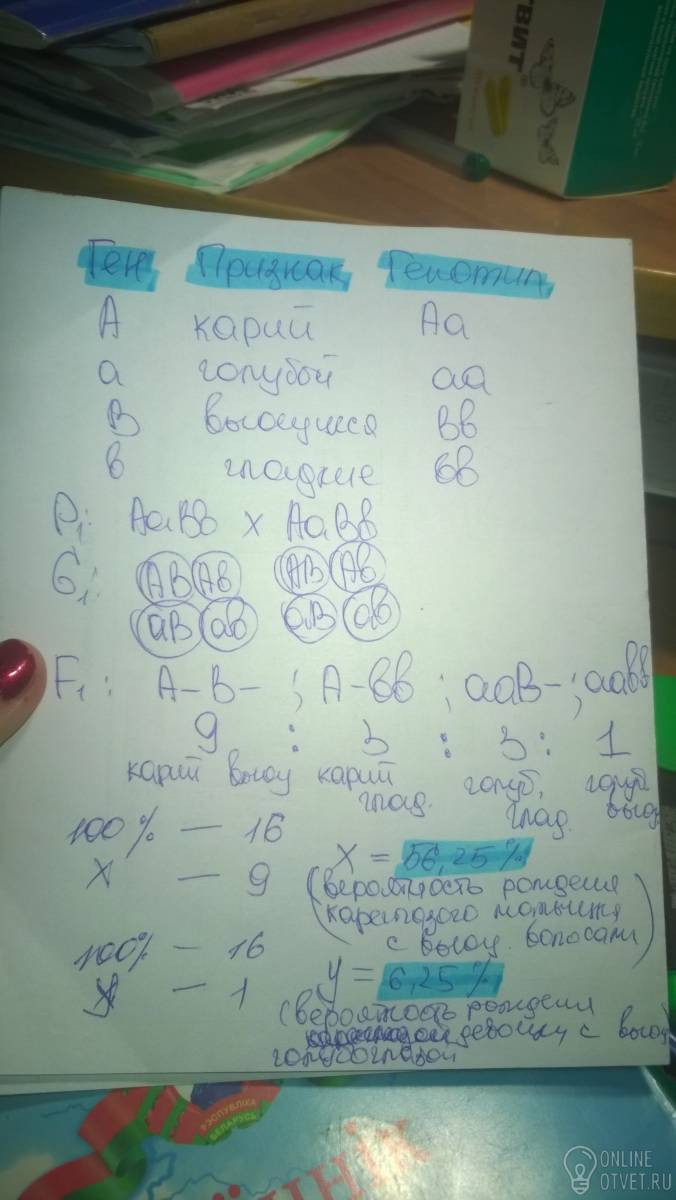 ТВИТ
Ген Признак Генотип
А карий Аа
а голубой аа
В вьющиеся Вв
в гладкие вв
P1: АаВв х АаВв
G1: АВ Ав АВ Ав
аВ ав аВ ав
F1: А-В- ; А-вв ; ааВ- ; аавв
9 : 3 : 3 : 1
карий вьющ карий глад. голуб, глад. голуб вьющ
100% — 16
х — 9
х = 56,25%
(вероятность рождения
кареглазого мальчика
с вьющ. волосами)
100% — 16
у — 1
у = 6,25%
(вероятность рождения
девочки с вьющ
голубоглазой
РЭСПУБЛІКА
БЕЛАРУСЬ
ННІК
ONLINE
OTVET.RU